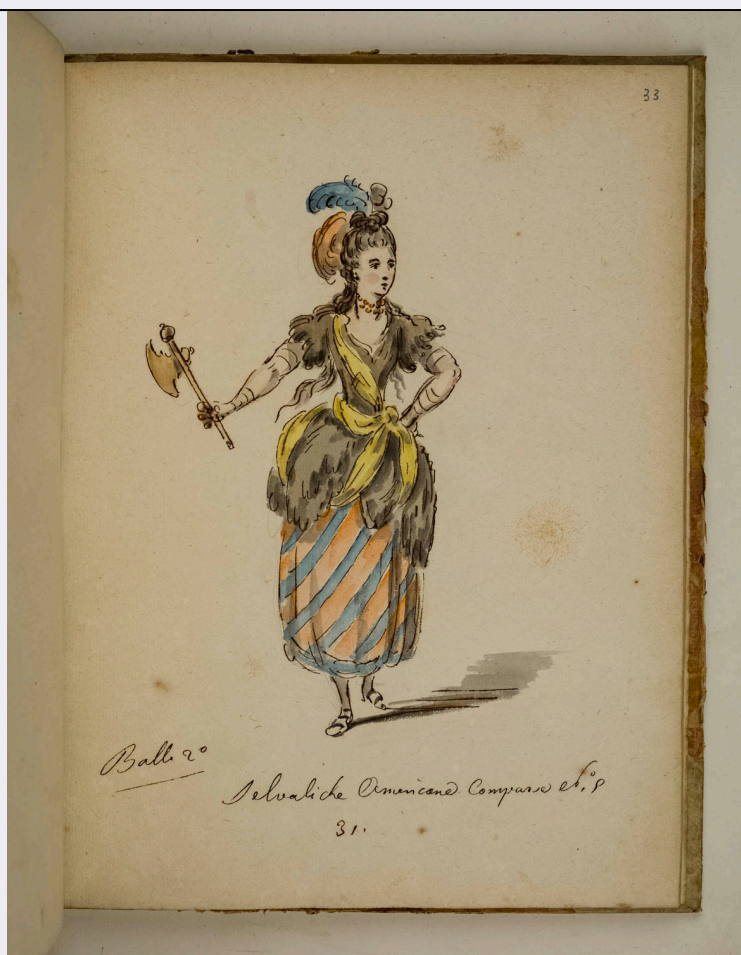 33
Ballo 2º
Selvatiche Americane Comparse
31.